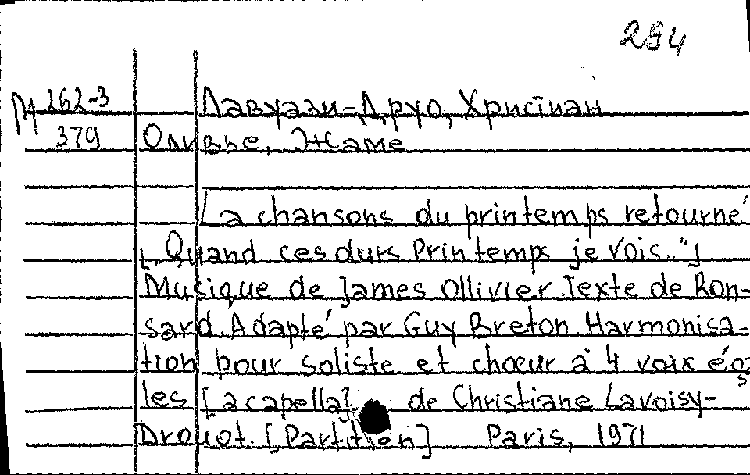 284
М 262-3 Лавуази-Друо, Христиан
379 Оливье, Жаме
La chansons du printemps retourné
[„Quand ces durs Printemps je vois.."]
Musique de James Ollivier Texte de Ron-
sard. Adapté par Guy Breton. Harmonisa-
tion pour soliste et chœur à 4 voix éga
les [a capella] de Christiane Lavoisy-
Drouot. [Partition] Paris, 1971